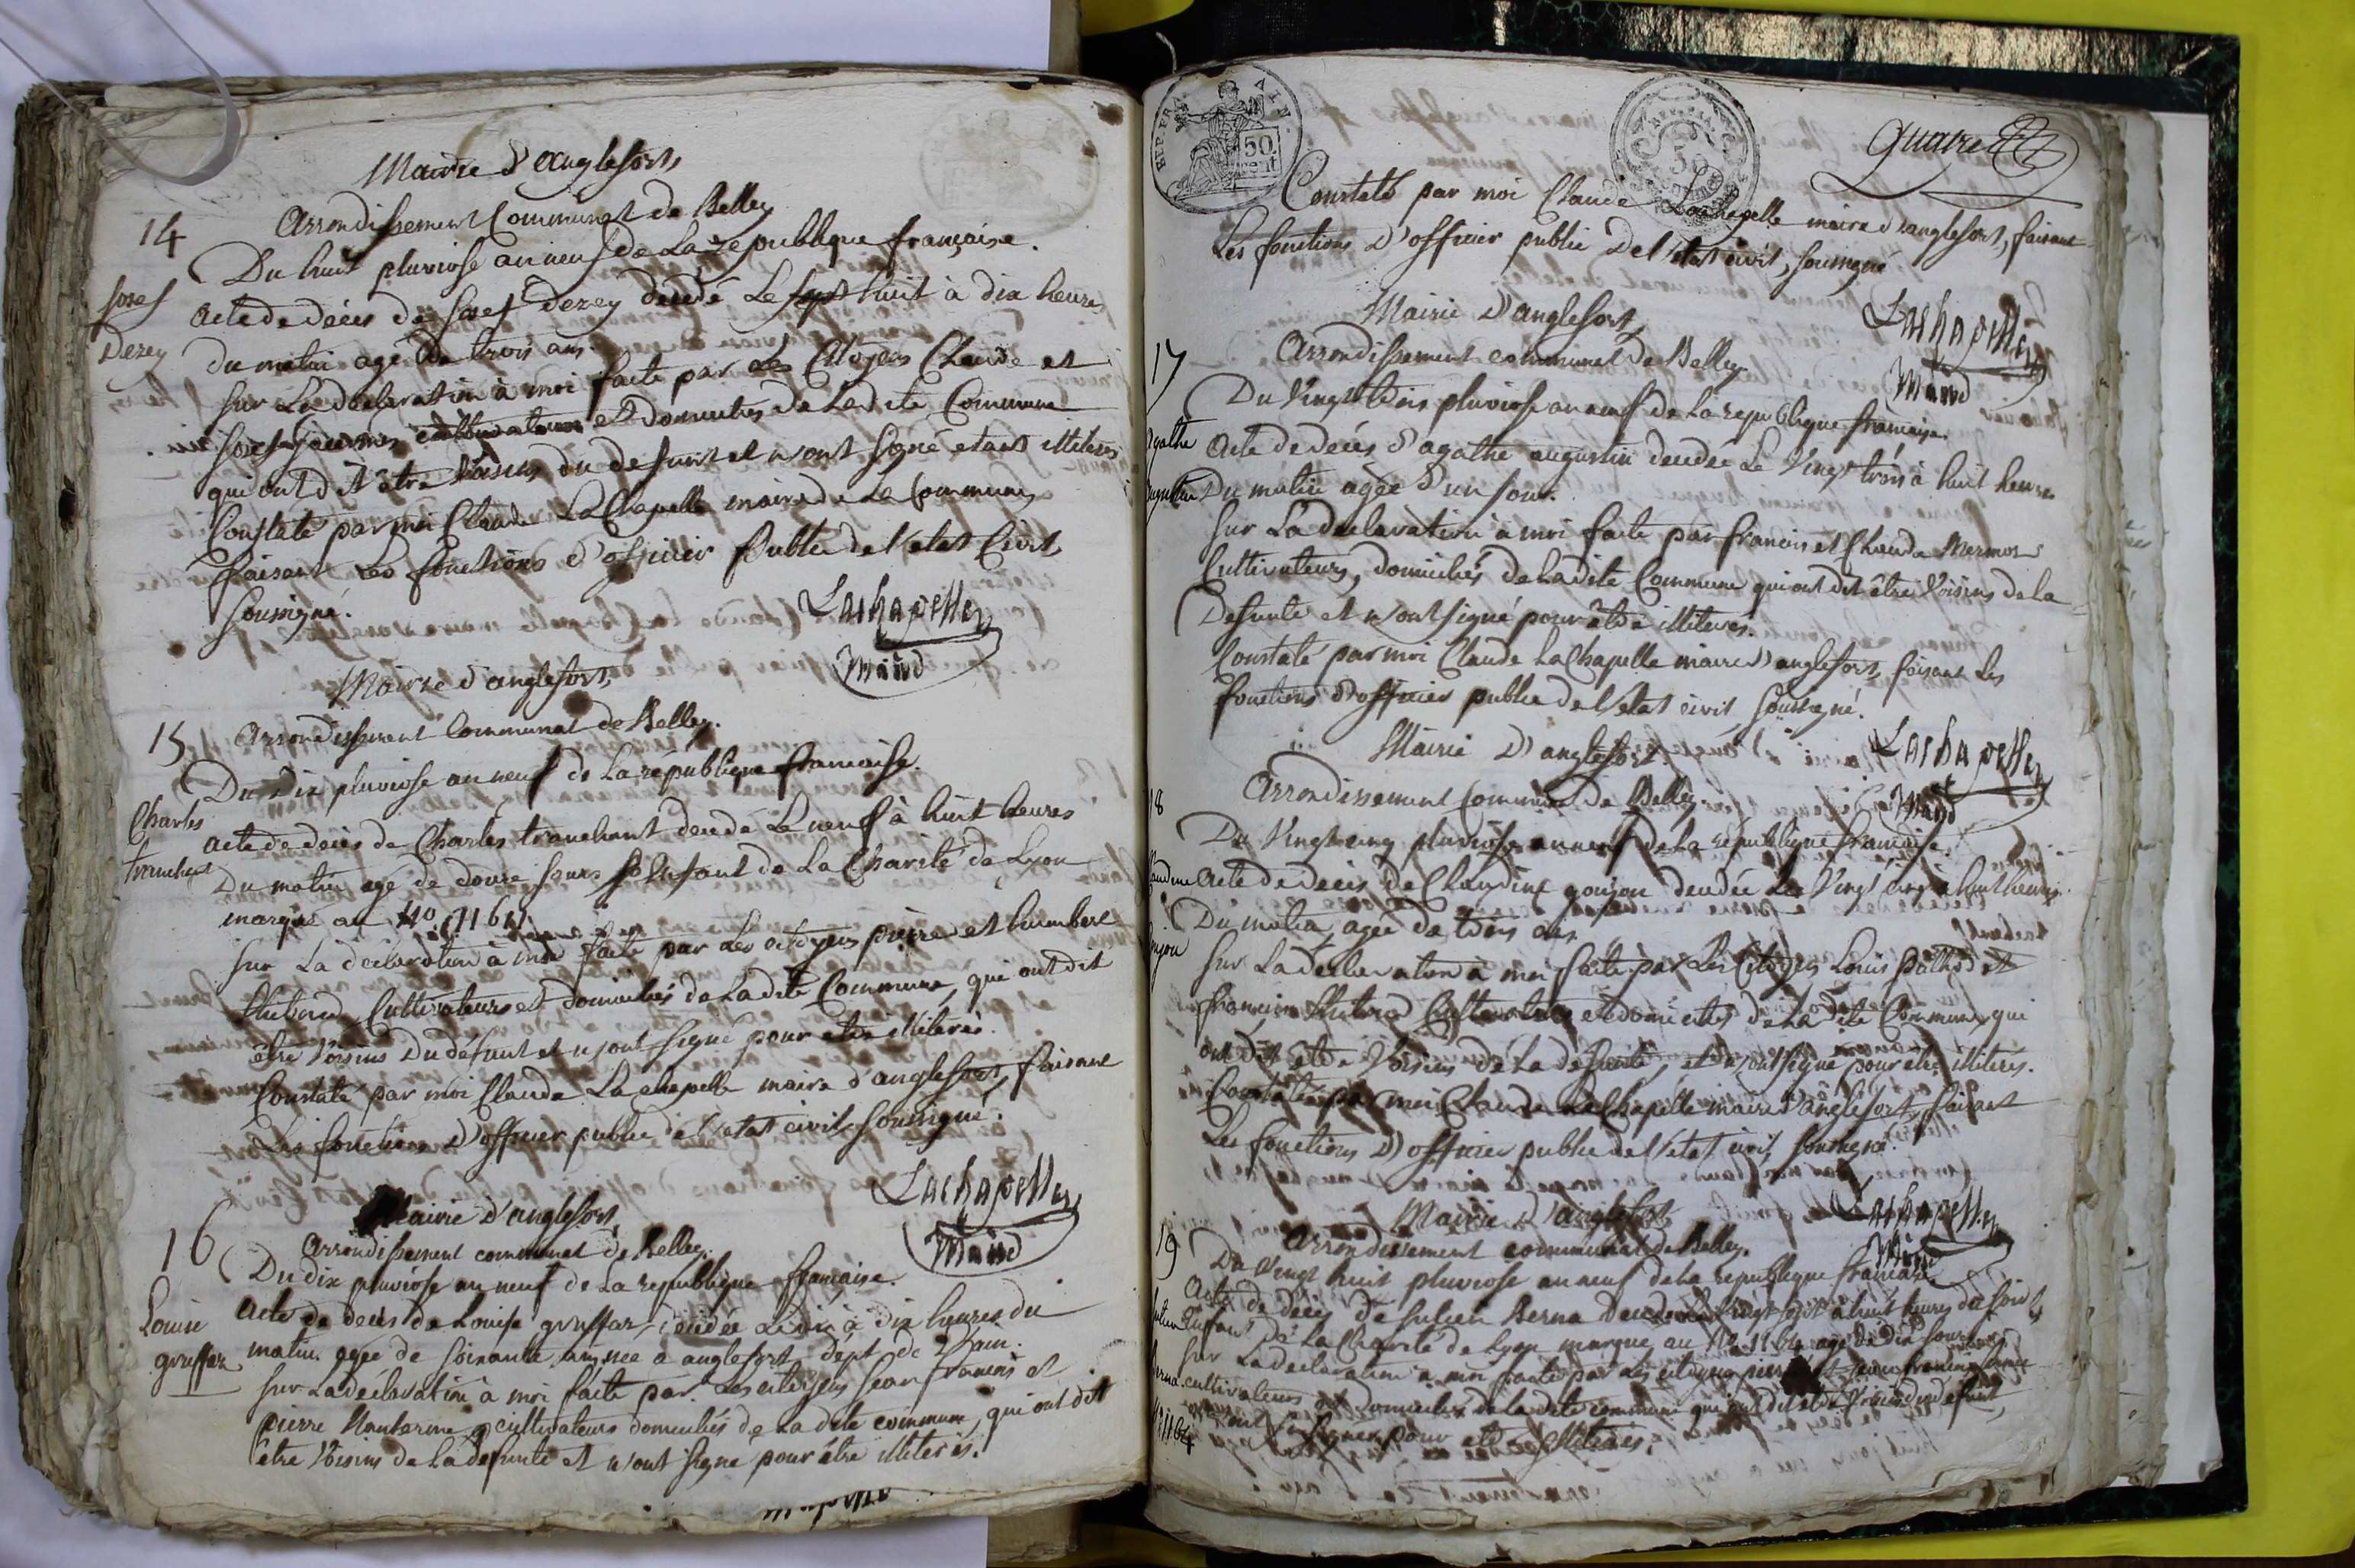 Mairie d'anglefort,
14
Arrondissement Communal de Belley
Du huit pluviose an neuf de La republique française.
Josef
Dezey
Acte de décès de Josef Dezey décédé Le huit à dix heures
du matin agé de trois ans.
Sur La déclaration à moi faite par Les Citoyens Claude et
Josef et domiciliés de Ladite Commune
qui ont dit être Voisins du defunt et n'ont signé etant illiterés
Constaté par moi Claude LaChapelle maire de La Commune,
faisant Les fonctions d'officier Public de l'etat Civil,
Soussigné.
Lachapelle
Maire
Mairie d'anglefort,
15
Arrondissement Communal de Belley.
Du Dix pluviose an neuf de La république francaise.
Charles
tranchant
acte de décès de Charles tranchant decedé Le neuf à huit heures
Du matin agé de douze jours Enfant de La Charité de Lyon
marqué au No
Sur La déclaration à moi faite par Les citoyens pierre et humbert
Cultivateurs et domiciliés de Ladite Commune, qui ont dit
être Voisins Du défunt et n'ont signé pour etre illiterés.
Constaté par moi Claude La chapelle maire d'anglefort, faisant
Les fonctions D'officier public de l'etat civil Soussigné.
Lachapelle
Maire
Mairie d'anglefort,
16
Arrondissement communal de Belley.
Du dix pluviose an neuf de La republique française.
Louise
gruffaz
Acte de decès de Louise gruffaz, décédée Le dix à dix heures du
matin agée de soixante ans née a anglefort dépt de L'ain.
Sur La déclaration à moi faite par Les citoyens Jean francois et
pierre cultivateurs domiciliés de Ladite commune, qui ont dit
être Voisins de La defunte et n'ont signé pour être illiterés.
Quatre
REP. FRA.
50
cent
Constaté par moi Claude Lachapelle maire d'anglefort, faisant
Les fonctions D'officier public De l'etat civil, soussigné
Lachapelle
Maire
Mairie D'anglefort,
17
Arrondissement communal de Belley.
Du Vingt trois pluviose an neuf de La republique francaise.
agathe
augustin
Acte de decès d'agathe augustin decedée Le Vingt trois à huit heures
Du matin agée d'un jour.
Sur La declaration à moi faite par francois et Claude Mermoz
Cultivateurs, domiciliés de Ladite Commune qui ont dit être Voisins de la
Defunte et n'ont signé pour être illiterés.
Constaté par moi Claude LaChapelle maire D'anglefort, faisant Les
fonctions D'officier public de l'etat civil, soussigné.
Lachapelle
Maire
Mairie D'anglefort.
18
Arrondissement Communal de Belley
Du Vingt cinq pluviose an neuf de La republique francaise.
Claudine
goujon
Acte de decès de Claudine goujon decedée Le Vingt cinq à huit heures
Du matin, agée de trois ans
Sur La declaration à moi faite par Les Citoyens Louis et
francois Cultivateurs et domiciliés de La dite Commune qui
ont dit être Voisins de La defunte, et n'ont signé pour être illiterés.
Constaté par moi Claude LaChapelle maire D'anglefort, faisant
Les fonctions D'officier public de l'etat civil, soussigné.
Lachapelle
Maire
Mairie D'anglefort,
19
Arrondissement communal de Belley.
Du Vingt huit pluviose an neuf de La republique francaise
Julien
Berna
No 1164
Acte de décès de Julien Berna decedé Le Vingt sept à huit heures du soir
Enfant de La Charité de Lyon marqué au No 1164 agé de Dix jours
Sur La declaration à moi faite par Les citoyens pierre et jean francois
cultivateurs et domiciliés de Ladite commune qui ont dit etre Voisins du defunt,
et n'ont signé pour etre illiterés.